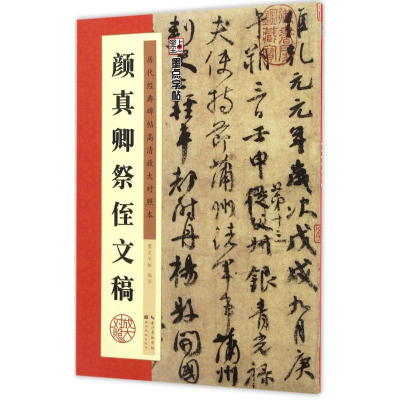 历代经典碑帖高清放大对照本
颜真卿祭侄文稿
墨点字帖 编写
放大对照
墨点字帖
維乾元元年歲次戊戌九月庚
午朔三日壬申
第十三
銀青光祿
夫使持節蒲州諸軍事蒲州
刺史上輕車都尉丹楊縣開國